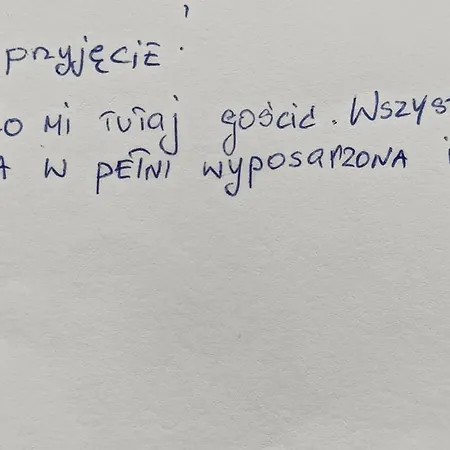 przyjęcie!
o mi tutaj gościć. Wszys
a w pełni wyposarzona i